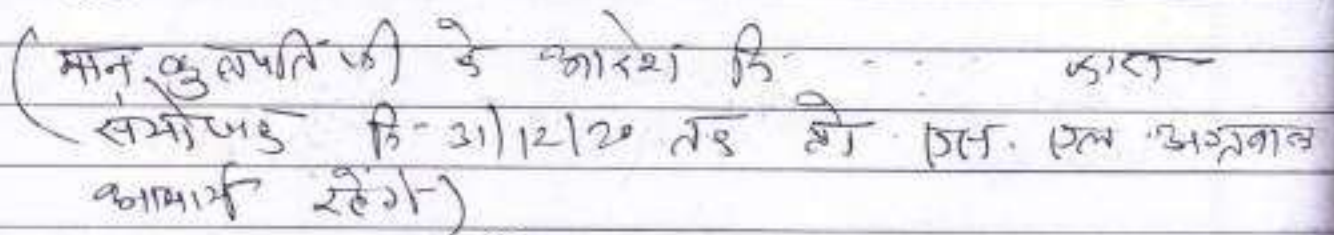 (मान. कुलपति जी के आदेश दि- . . . . द्वारा
संयोजक दि- 31/12/20 तक प्रो. एस. एल. अग्रवाल
आचार्य रहेंगे-)